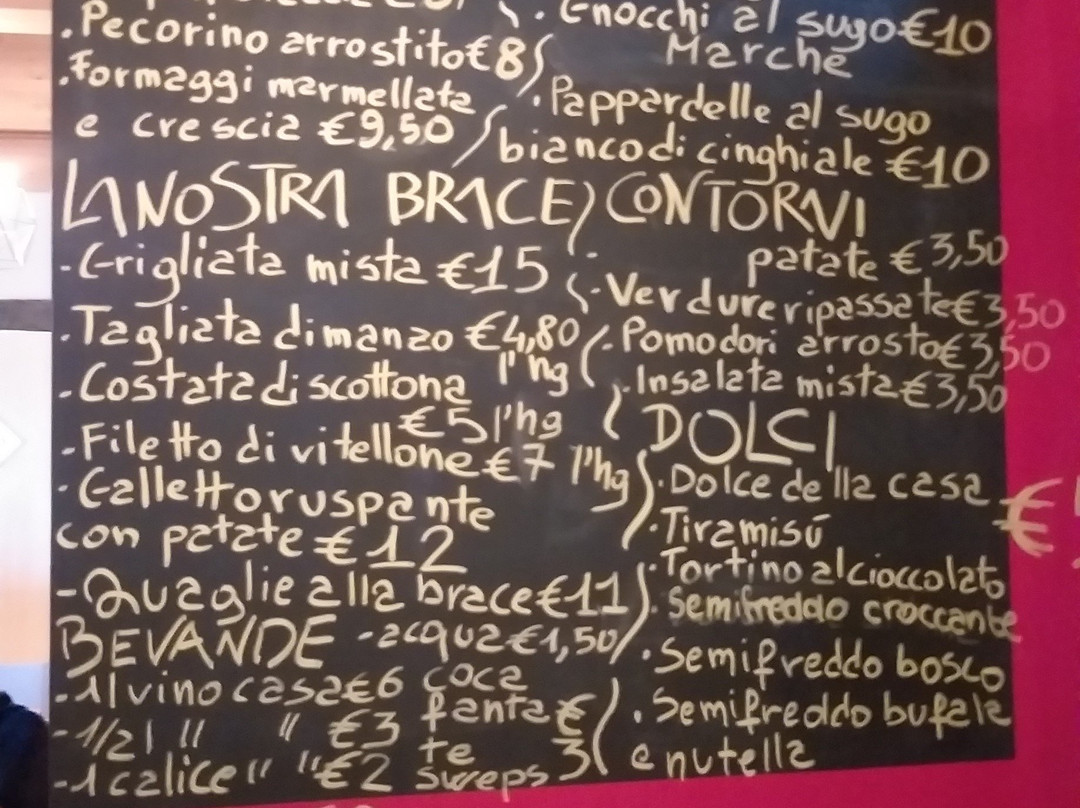 .Pecorino arrostito€8
.Formaggi marmellata
e crescia €9,50
. Gnocchi al sugo€10
Marche
.Pappardelle al sugo
bianco di cinghiale €10
LA NOSTRA BRACE
-Grigliata mista €15
.Tagliata di manzo €4,80
l'hg
-Costata di scottona
€5 l'hg
-Filetto di vitellone €7 l'hg
.Galletto ruspante
con patate €12
-Quaglie alla brace€11
CONTORNI
patate €3,50
.Verdure ripassate€3,50
.Pomodori arrosto€3,50
.Insalata mista€3,50
DOLCI
.Dolce della casa
€
.Tiramisū
.Tortino al cioccolato
.Semifreddo croccante
.Semifreddo bosco
.Semifreddo bufala
e nutella
BEVANDE -acqua€1,50
-1l vino casa€6
-1/2 l " " €3
-1 calice " " €2
coca
fanta €
te 3
sweps